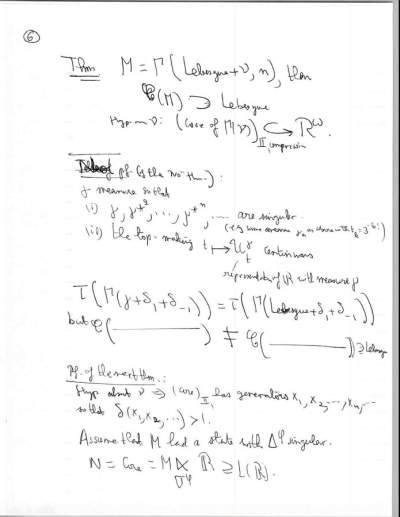 6
Thm M = Γ(Lebesgue + ν, n), then
𝒞(M) ⊃ Lebesgue
Hyp on ν: (core of M(ν)) ↪ R^ω.
II, compression
pf. (is the no thm.):
γ measure so that
(i) γ, γ*², ..., γ*ⁿ, ... are singular
(ii) the top. making t ↦ U_t^γ continuous
representation of ℝ with measure γ
τ(Γ(γ+δ₁+δ₋₁)) = τ(Γ(Lebesgue+δ₁+δ₋₁))
but 𝒞(———) ≠ 𝒞(———) ⊇ Lebesgue
pf. of the next thm.:
Hyp about ν ⇒ (core)_II has generators x₁, x₂, ..., xₙ, ...
so that δ(x₁, x₂, ...) > 1.
Assume that M had a state with Δ^φ singular.
N = Core = M ⋊ ℝ ⊇ L(ℝ).
σ^φ